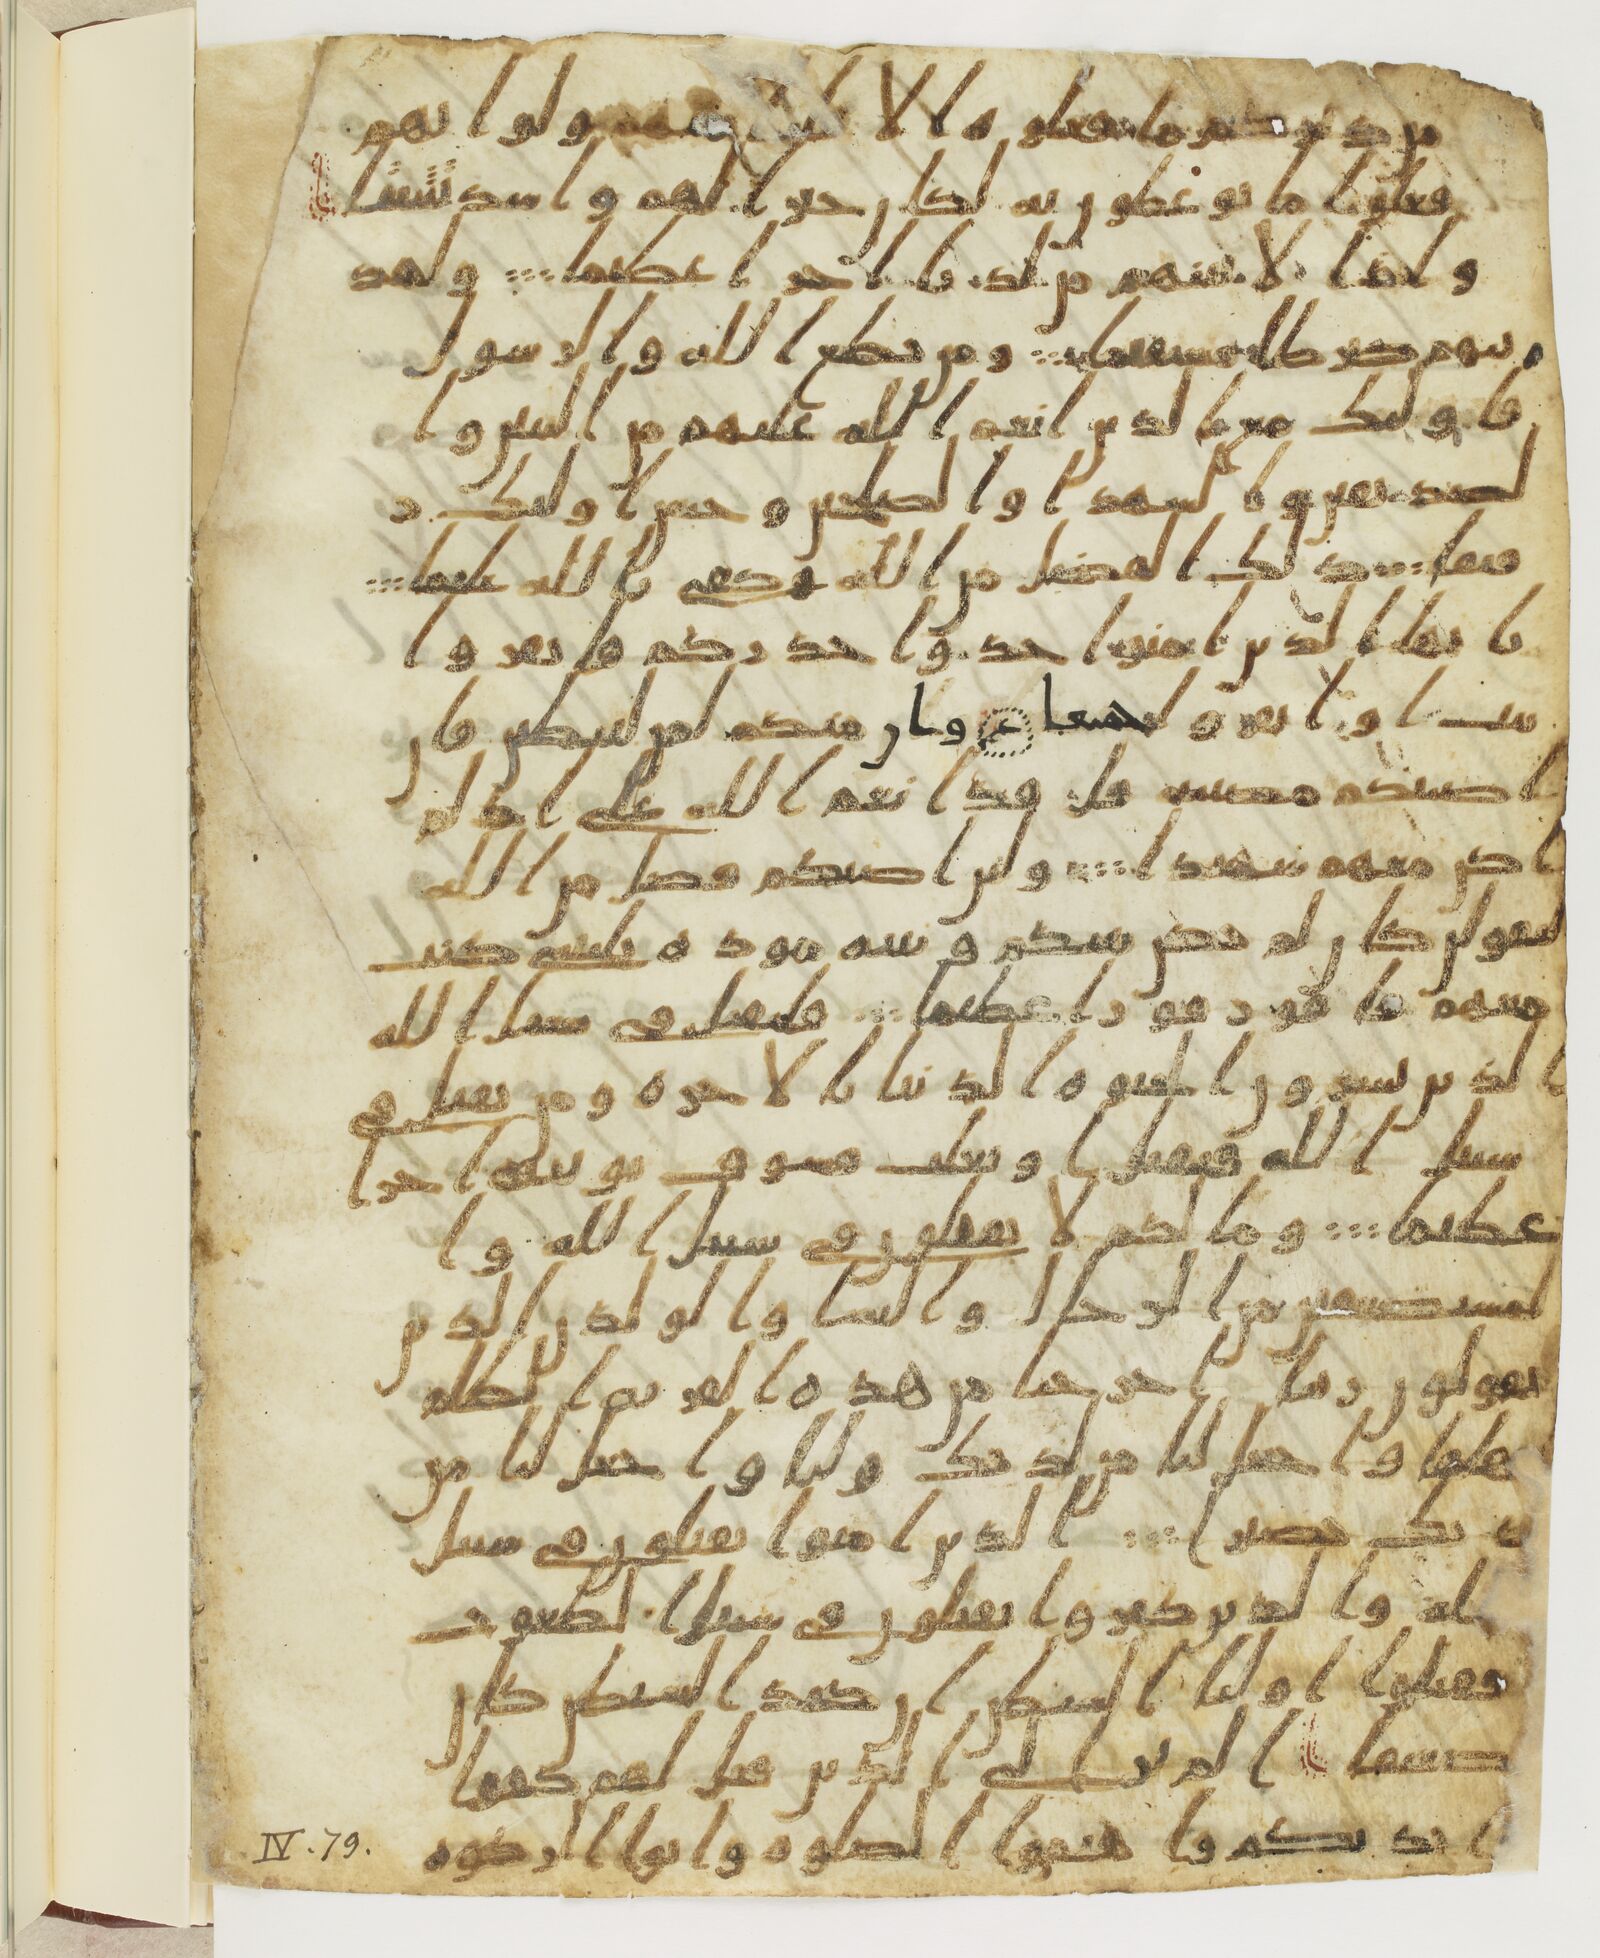 من ديركم ما فعلوه الا قليل منهم ولو انهم
فعلوا ما يوعظون به لكان خيرا لهم واشد تثبيتا
واذا لاتينهم من لدنا اجرا عظيما ولهد
ينهم صرطا مستقيما ومن يطع الله والرسول
فاوليك مع الذين انعم الله عليهم من النبين وا
لصديقين والشهدا والصلحين وحسن اوليك ر
فيقا ذلك الفضل من الله وكفى بالله عليما
يايها الذين امنوا خذوا حذركم فانفروا
ثبات او انفروا جميعا وان منكم لمن ليبطين فان
اصبتكم مصيبه قل قد انعم الله على اذ لم
اكن معهم شهيدا ولين اصبكم فضل من الله
ليقولن كان لم تكن بينكم وبينه موده يليتني كنت
معهم فافوز فوزا عظيما فليقتل في سبيل الله
الذين يشرون الحيوه الدنيا بالاخره ومن يقتل في
سبيل الله فيقتل او يغلب فسوف نوتيه اجرا
عظيما وما لكم لا تقتلون في سبيل الله وا
لمستضعفين من الرجال والنسا والولدن الذين
يقولون ربنا اخرجنا من هذه القريه الظلم
اهلها واجعل لنا من لدنك وليا واجعل لنا من
لدنك نصيرا الذين امنوا يقتلون في سبيل
الله والذين كفروا يقتلون في سبيل الطغوت
فقتلوا اوليا الشيطن ان كيد الشيطن كان
ضعيفا الم تر الى الذين قيل لهم كفوا
ايديكم واقيموا الصلوه واتوا الزكوه
IV.79.